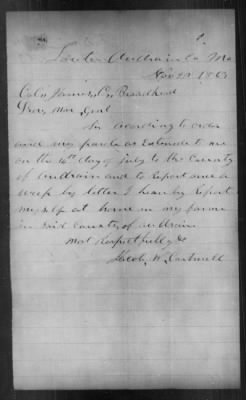 Audrain Co Mo
Nov 20 1863
Col James O. Broadhead
Prov Mar Genl
Sir According to order
and my parole as extended to me
on the 16th day of July to the County
of Audrain and to report once a
week by letter I hearby Report
myself at home on my farm
in said county of Audrain
Most Respectfully &c
Jacob W.